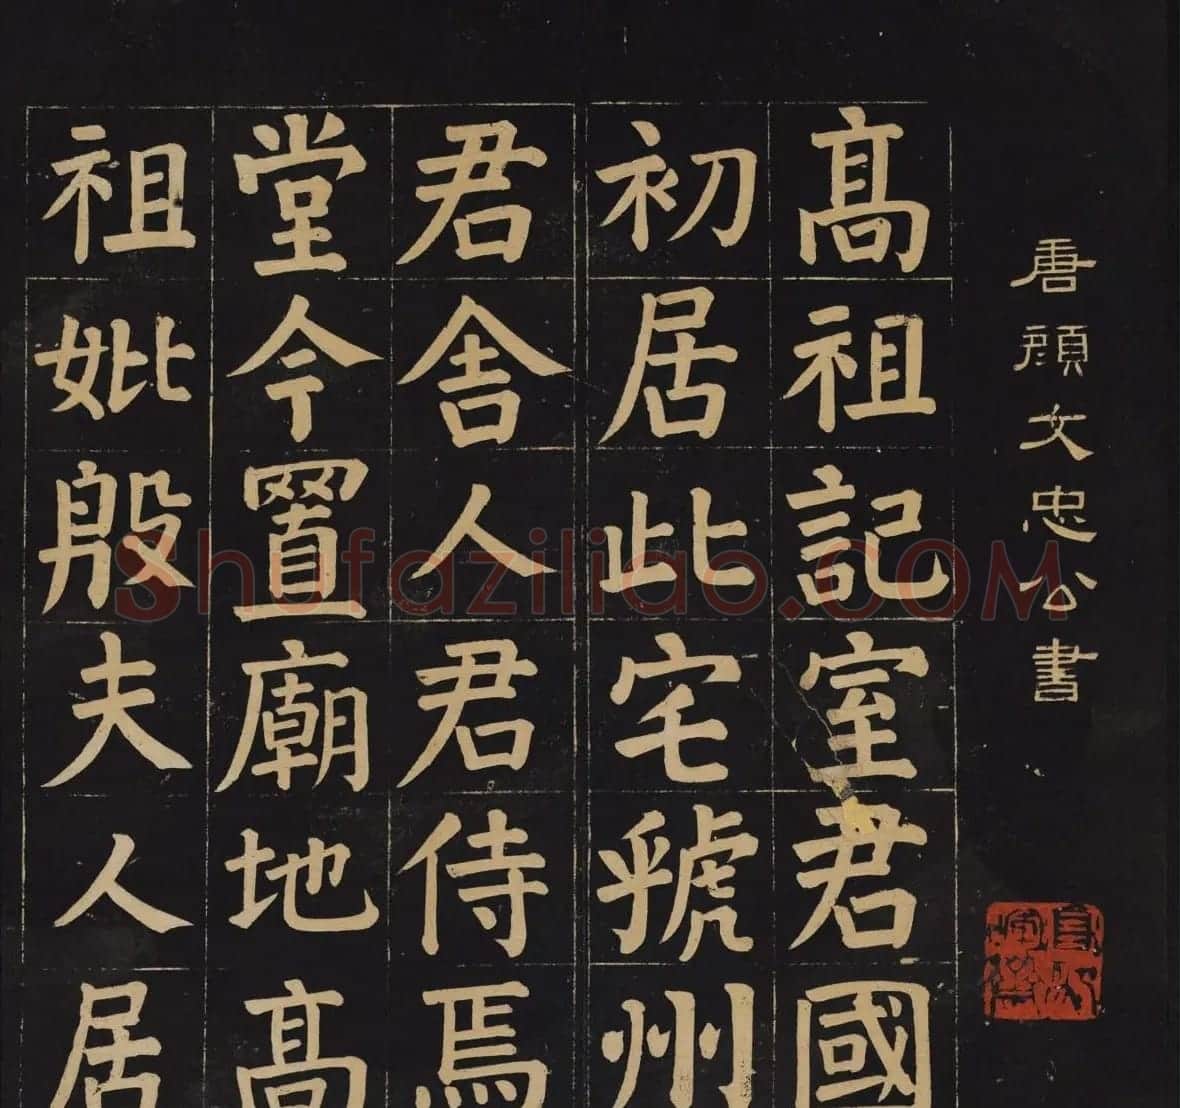 唐顏文忠公書
高祖記室君國
初居此宅虢州
君舍人君侍焉
堂今置廟地高
祖妣殷夫人居
Shufaziliao.COM